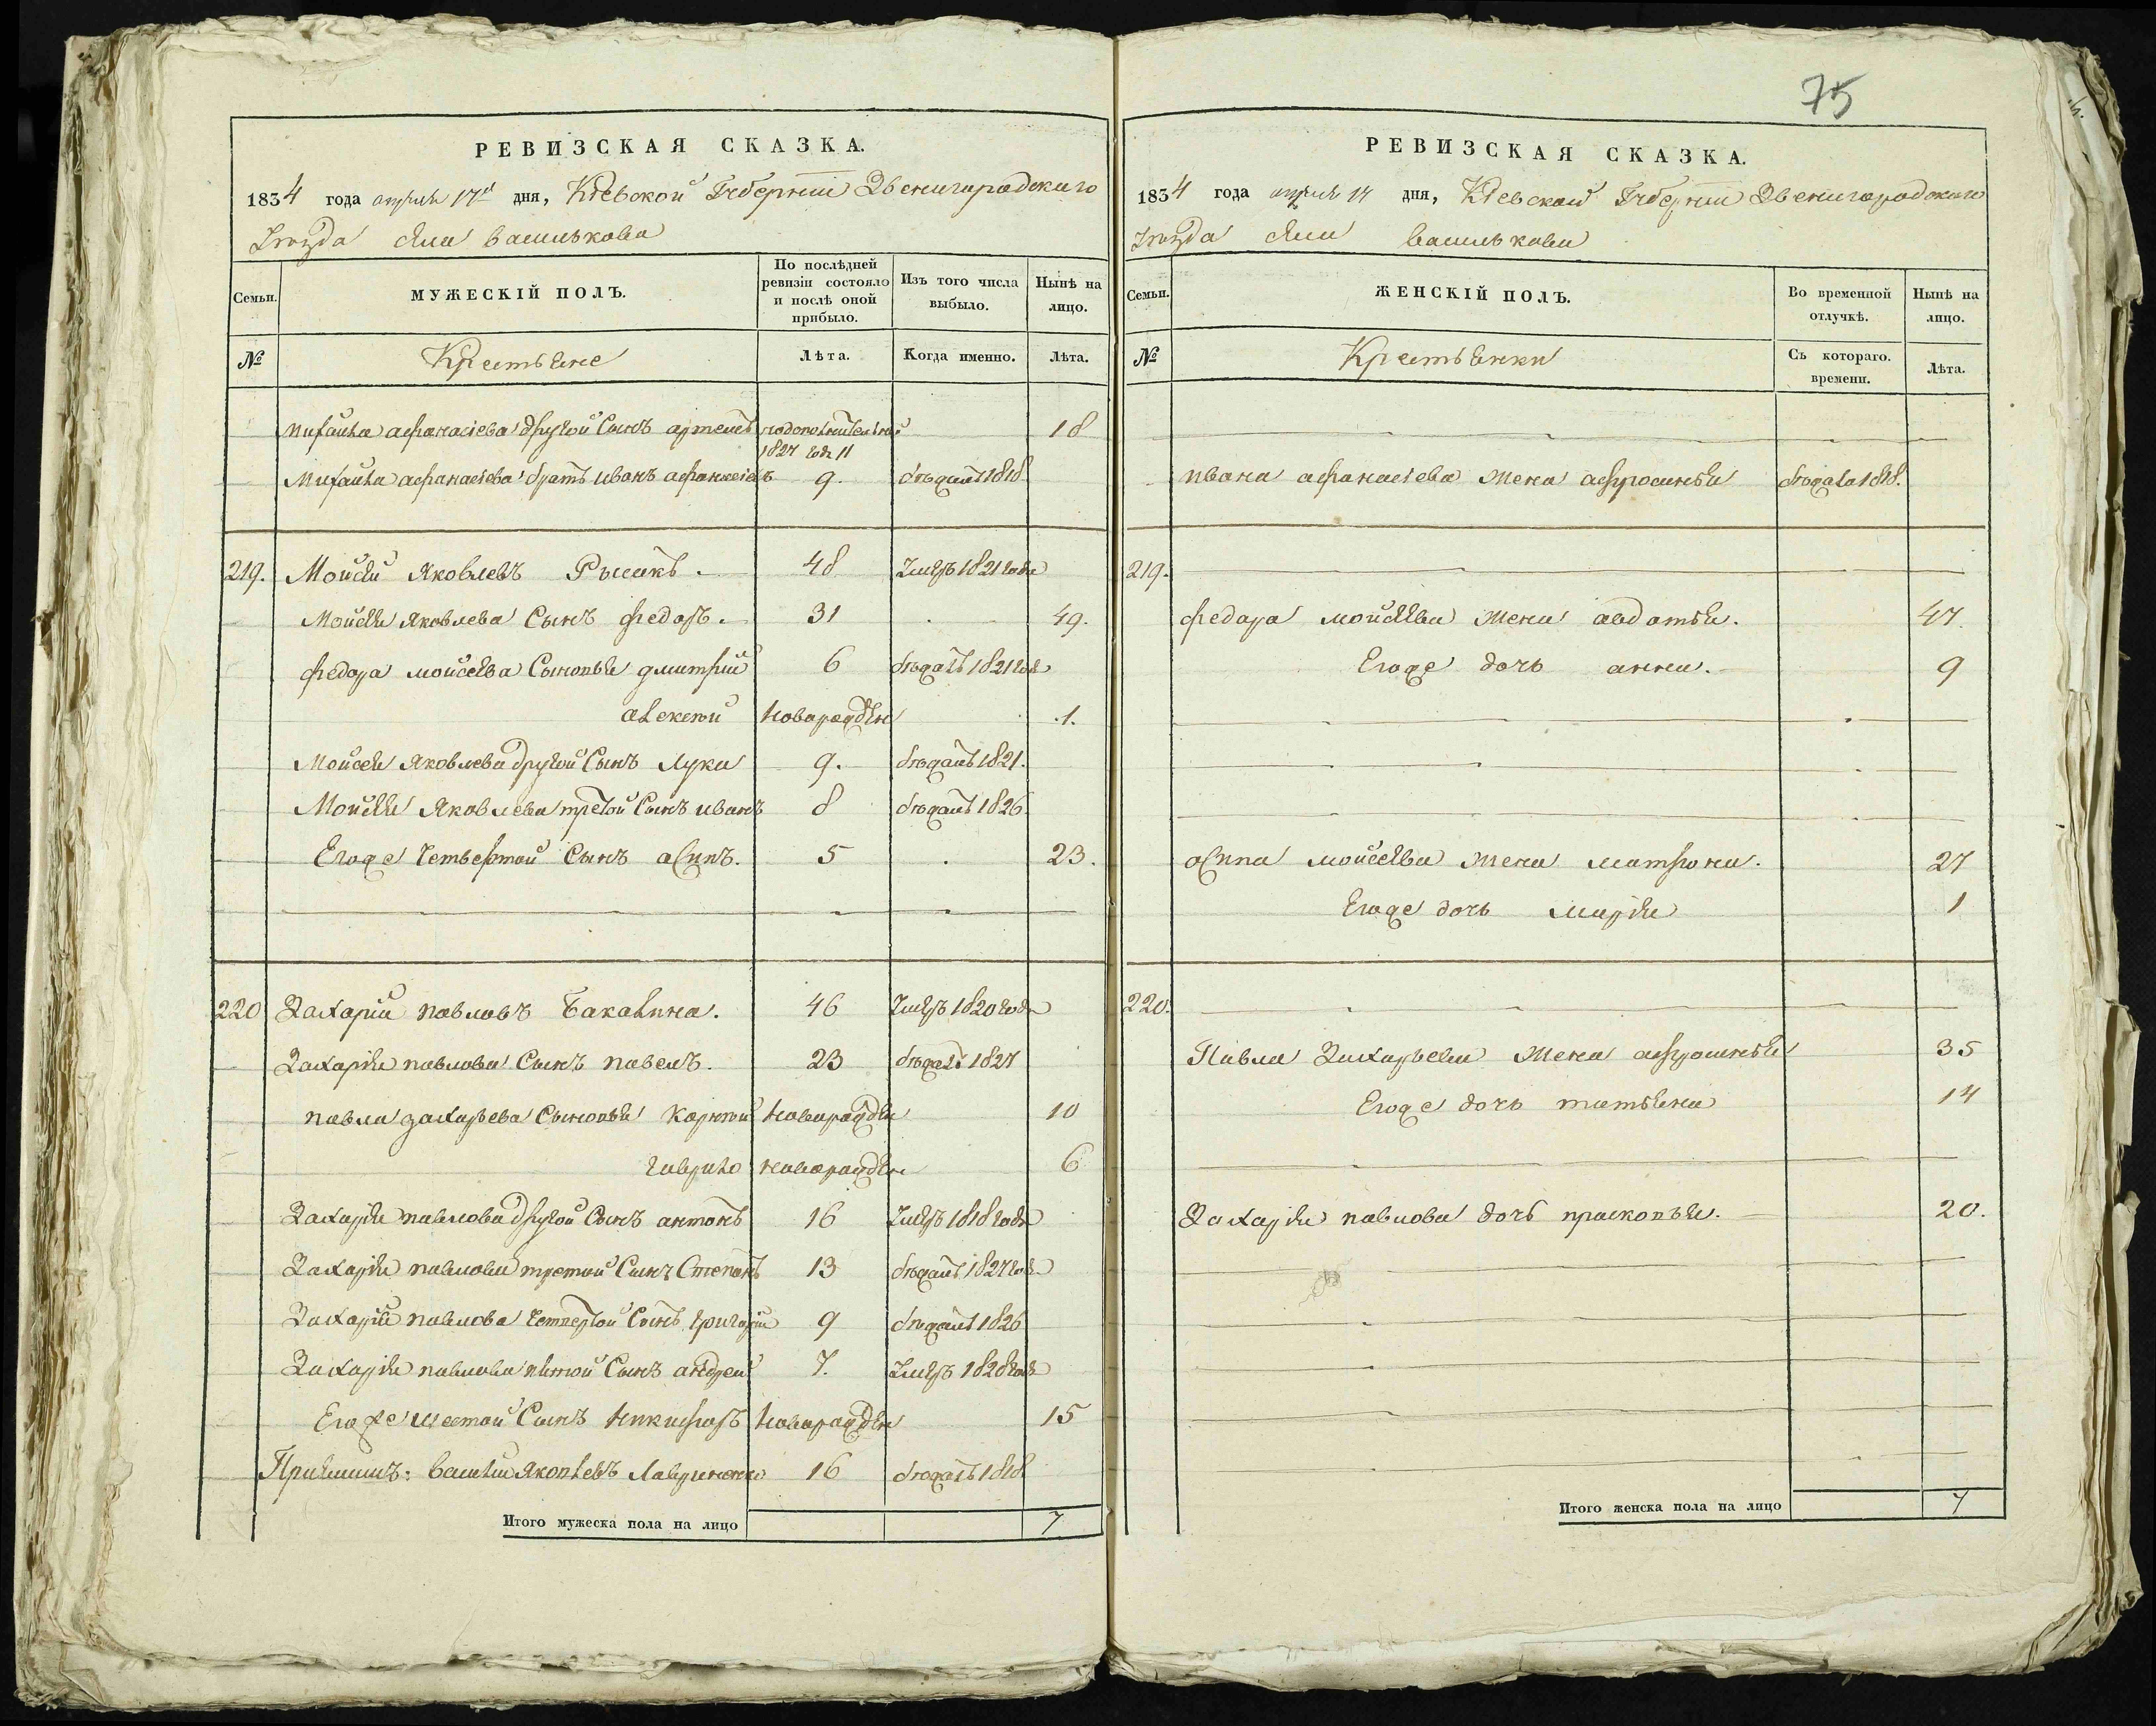 75
РЕВИЗСКАЯ СКАЗКА.
1834 года апреля 17 дня, Кіевской Губерніи Звенигородского
Уезда села Василькова
Семьи.
МУЖЕСКІЙ ПОЛЪ.
По послѣдней ревизіи состояло и послѣ оной прибыло.
Изъ того числа выбыло.
Нынѣ на лицо.
№
Крестьяне
Лѣта.
Когда именно.
Лѣта.
Михайла афанасіева другой Сынъ артемъ 1827 года 11 18
Михайла афанасіева братъ иванъ афанасіевъ 9. бѣжалъ 1818
219. Мойсей Яковлевъ 48 Умеръ 1821 года
Мойсея Яковлева Сынъ федоръ. 31 49.
федора мойсеева Сыновья дмитрий 6 бѣжалъ 1821 года
алексей новорожден 1.
Мойсея Яковлева другой Сынъ Лука 9. бѣжалъ 1821.
Мойсея Яковлева третой Сынъ иванъ 8 бѣжалъ 1826
Егоже Четвертой Сынъ асипъ. 5 23.
220 Захарій павловъ Бакалина. 46 Умеръ 1820 года
Захарія павлова Сынъ павелъ. 23 бѣжалъ 1827
павла захарьева Сыновья Корней новорожден 10
гаврило новорожден 6
Захарія павлова другой Сынъ антонъ 16 Умеръ 1818 года
Захарія павлова третой Сынъ Степанъ 13 бѣжалъ 1827 года
Захарія павлова Четвертой Сынъ григорій 9 бѣжалъ 1826
Захарія павлова пятой Сынъ андрей 7. Умеръ 1828 года
Егоже шестой Сынъ никифоръ новорожден 15
Приймышъ: василий Яковлевъ Лавриненко 16 бѣжалъ 1818
Итого мужеска пола на лицо 7
РЕВИЗСКАЯ СКАЗКА.
1834 года апреля 17 дня, Кіевской Губерніи Звенигородского
Уезда села Василькова
Семьи.
ЖЕНСКІЙ ПОЛЪ.
Во временной отлучкѣ.
Нынѣ на лицо.
№
Крестьянки
Съ котораго. времени.
Лѣта.
ивана афанасіева жена афросинья бѣжала 1818.
219.
федора мойсеева жена авдотья. 47.
Егоже дочь анна. 9
асипа мойсеева жена матрона. 27
Егоже дочь марія 1
220.
Павла Захарьева жена афросинья 35
Егоже дочь татьяна 14
Захарія павлова дочь прасковья. 20.
Итого женска пола на лицо 7